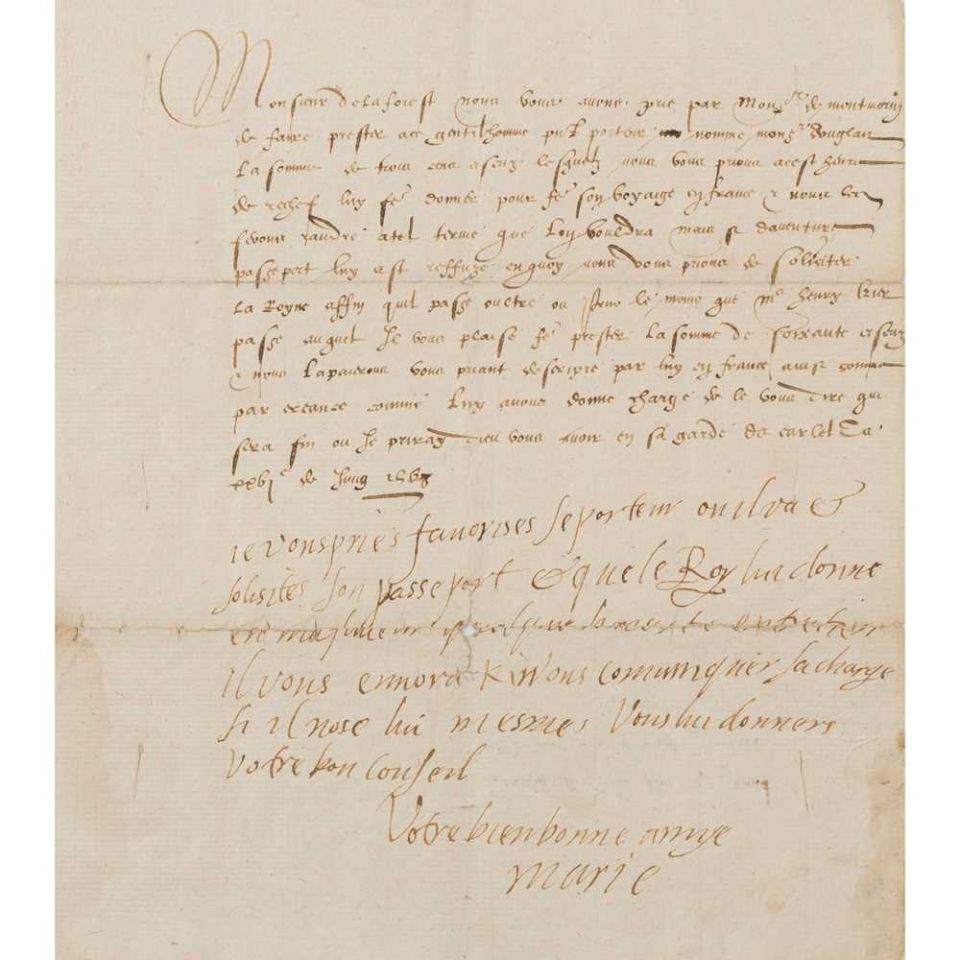 Monsieur delaforest nous vous avons prie par Monsr de montmorin
de faire prester a ce gentilhomme pnt porteur nomme monsr douglas
La somme de trois cens escuz lesquelz nous vous prions a cest heure
de rechef luy fe donner pour fe son voyaige en france & nous les
ferons randre a tel terme que Lon vouldra mais si daventure
passeport luy est reffuze en quoy nous vous prions de soliciter
La Royne affin quil passe oultre ou pour le moins que Mr henry
passe auquel Il vous plaise fe prester La somme de soixante escuz
& nous Lapaierons vous priant descripre par luy en france ainsi comme
par creance comme Luy avons donne charge de le vous dire qui
sera fin ou Je priray dieu vous avoir en sa garde De carlel Ce
xxvie de Juing 1568
ie vous pries favorises se porteur ou il va &
solisites son passeport & que le Roy lui donne
quelque
Il vous envora Kir vous comuniquer sa charge
si il nose lui mesmes Vous lui donneres
Votre bon Conseil
Votre bien bonne amye
Marie